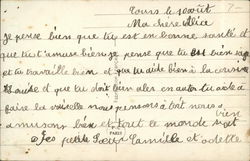 Tours le 10 août
Ma chère Alice
Je pense bien que tu est en bonne santé et
que tu t'amuse bien je pense que tu est bien sage
et tu travaille bien et que tu aide bien à la cousine
et que tu doit bien aler en auto tu aide à
faire la vaiselle nous pensons à toi nous
amusons bien et tout le monde
bien
Les petite Camille et odette